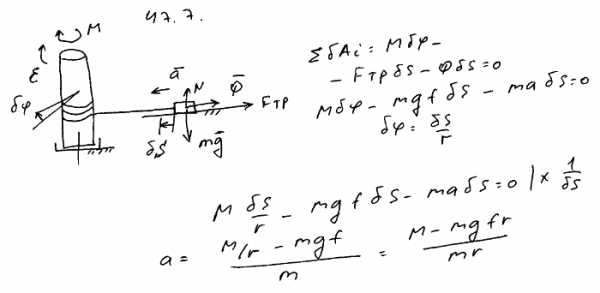 47.7.
M
ε
δφ
a̅
N
Φ̅
Fтр
δS
mg̅
ΣδAi = Mδφ -
- FтрδS - ΦδS = 0
Mδφ - mgfδS - maδS = 0
δφ = δS/r
M δS/r - mgfδS - maδS = 0 | × 1/δS
a = (M/r - mgf)/m = (M - mgfr)/mr